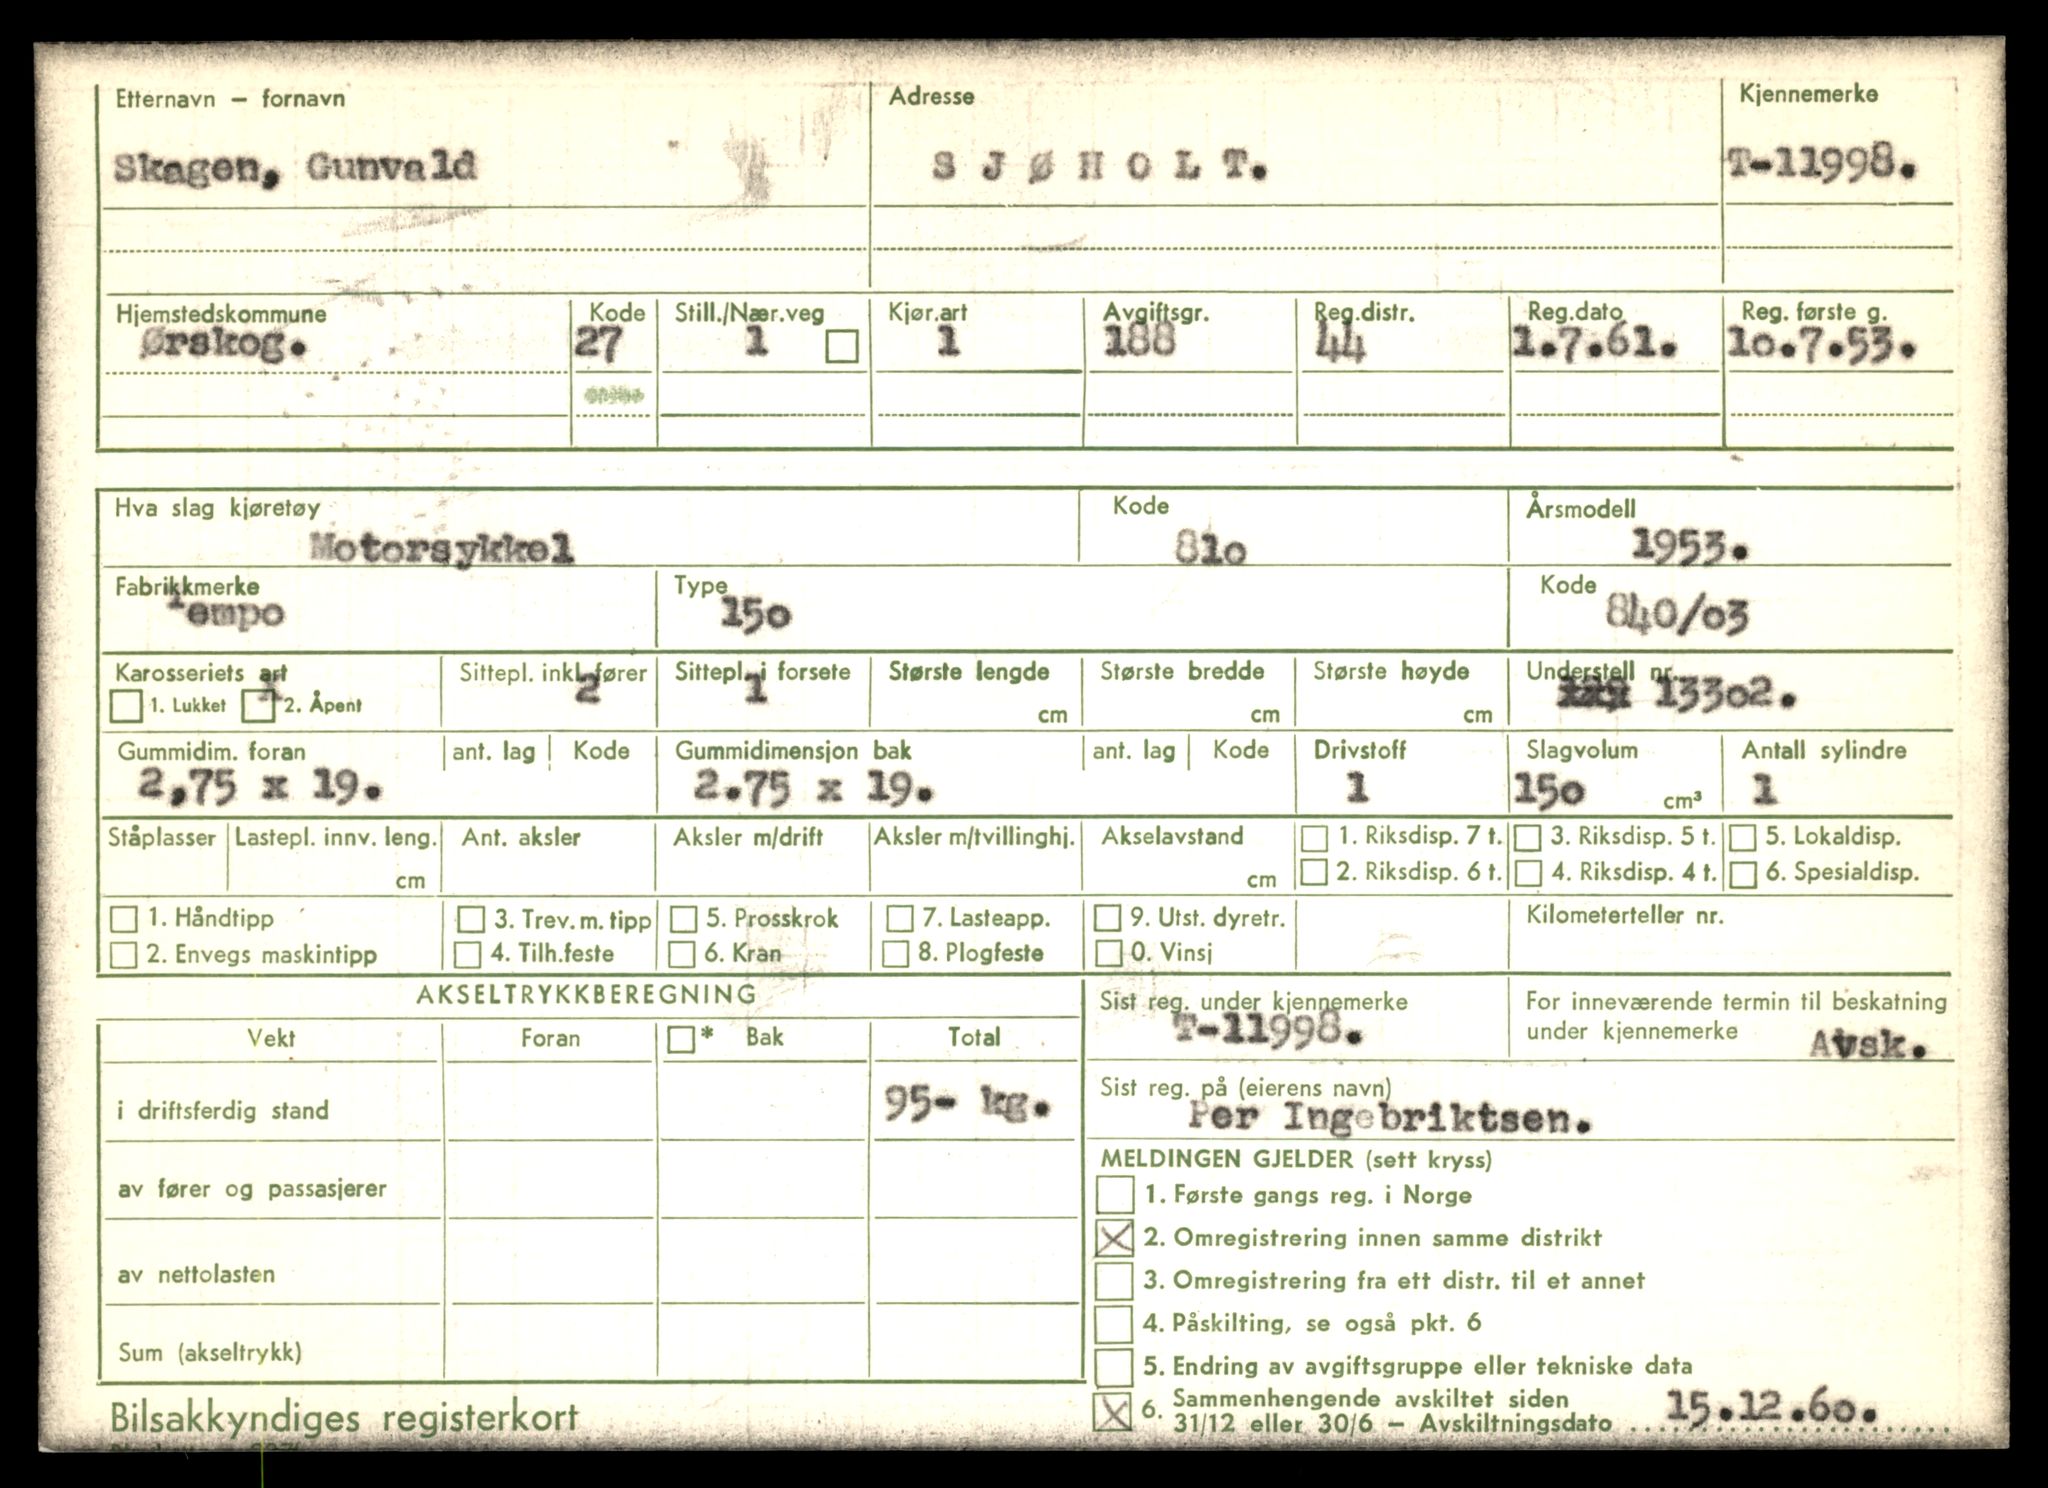 Etternavn – fornavn Adresse Kjennemerke
Skagen, Gunvald S J Ø H O L T. T-11998.
Hjemstedskommune Kode Still./Nær.veg Kjør.art Avgiftsgr. Reg.distr. Reg.dato Reg. første g.
Ørskog. 27 1 1 188 44 1.7.61. 1o.7.53.
Hva slag kjøretøy Kode Årsmodell
Motorsykkel 81o 1953.
Fabrikkmerke Type Kode
Tempo 15o 840/o3
Karosseriets art Sittepl. inkl. fører Sittepl. i forsete Største lengde Største bredde Største høyde Understell nr.
1. Lukket 2. Åpent 2 1 cm cm cm 133o2.
Gummidim. foran ant. lag Kode Gummidimensjon bak ant. lag Kode Drivstoff Slagvolum Antall sylindre
2,75 x 19. 2.75 x 19. 1 15o cm³ 1
Ståplasser Lastepl. innv. leng. Ant. aksler Aksler m/drift Aksler m/tvillinghj. Akselavstand 1. Riksdisp. 7 t. 3. Riksdisp. 5 t. 5. Lokaldisp.
cm cm 2. Riksdisp. 6 t. 4. Riksdisp. 4 t. 6. Spesialdisp.
1. Håndtipp 3. Trev. m. tipp 5. Prosskrok 7. Lasteapp. 9. Utst. dyretr. Kilometerteller nr.
2. Envegs maskintipp 4. Tilh.feste 6. Kran 8. Plogfeste 0. Vinsj
AKSELTRYKKBEREGNING Sist reg. under kjennemerke For inneværende termin til beskatning
T-11998. under kjennemerke Avsk.
Vekt Foran * Bak Total
Sist reg. på (eierens navn)
i driftsferdig stand 95- kg. Per Ingebriktsen.
MELDINGEN GJELDER (sett kryss)
av fører og passasjerer 1. Første gangs reg. i Norge
X 2. Omregistrering innen samme distrikt
av nettolasten 3. Omregistrering fra ett distr. til et annet
4. Påskilting, se også pkt. 6
Sum (akseltrykk) 5. Endring av avgiftsgruppe eller tekniske data
X 6. Sammenhengende avskiltet siden
31/12 eller 30/6 – Avskiltningsdato 15.12.6o.
Bilsakkyndiges registerkort